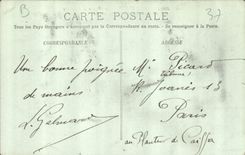 B
37
CARTE POSTALE
Tous les Pays étrangers n'acceptent pas la Correspondance au recto. - Se renseigner à la Poste.
CORRESPONDANCE
ADRESSE
Une bonne poignée
de mains
Mr Picard
13
Paris
au Planteur de Caïffa